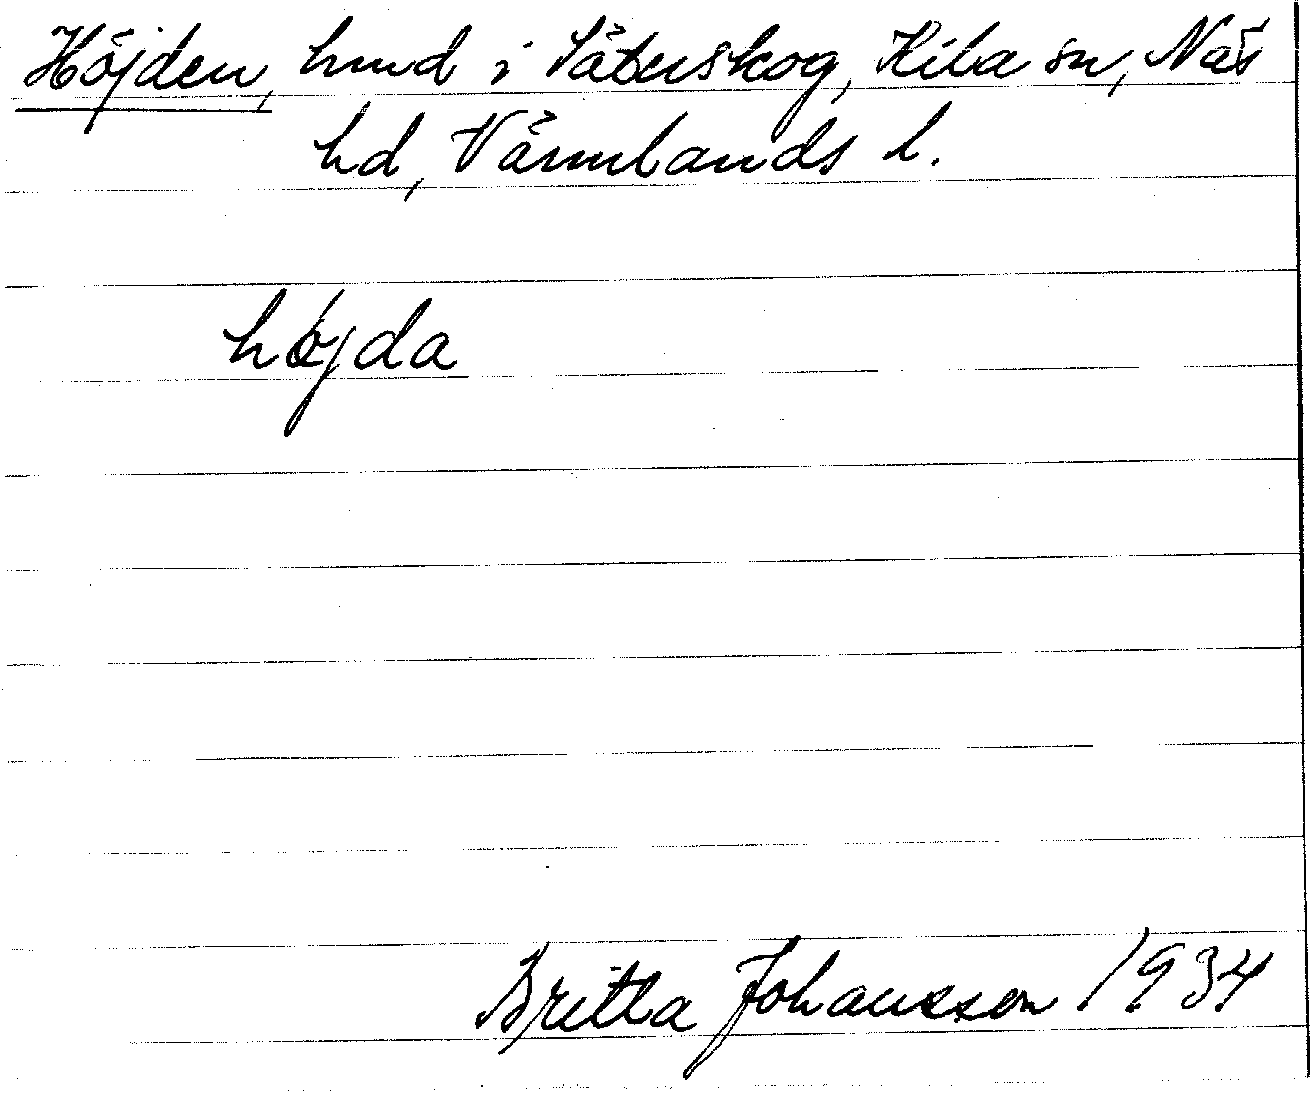 Höjden, hmd i Säterskog, Kila sn, Näs
hd, Värmlands l.
højda
Britta Johansson 1934